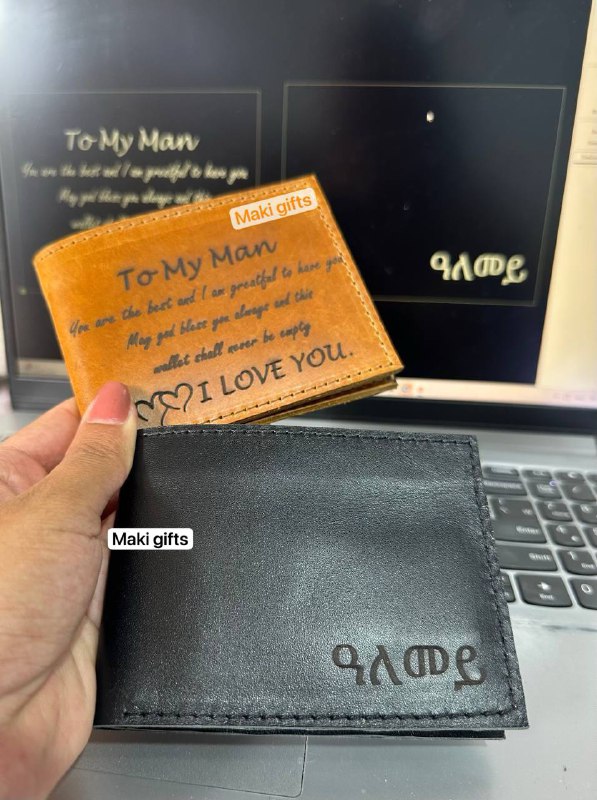 To My Man
You are the best and I am greatful to have you
May god bless you always and this
ዓለመይ
Maki gifts
To My Man
You are the best and I am greatful to have you
May god bless you always and this
wallet shall never be empty
I LOVE YOU.
Maki gifts
ዓለመይ
Enter
Shift
End